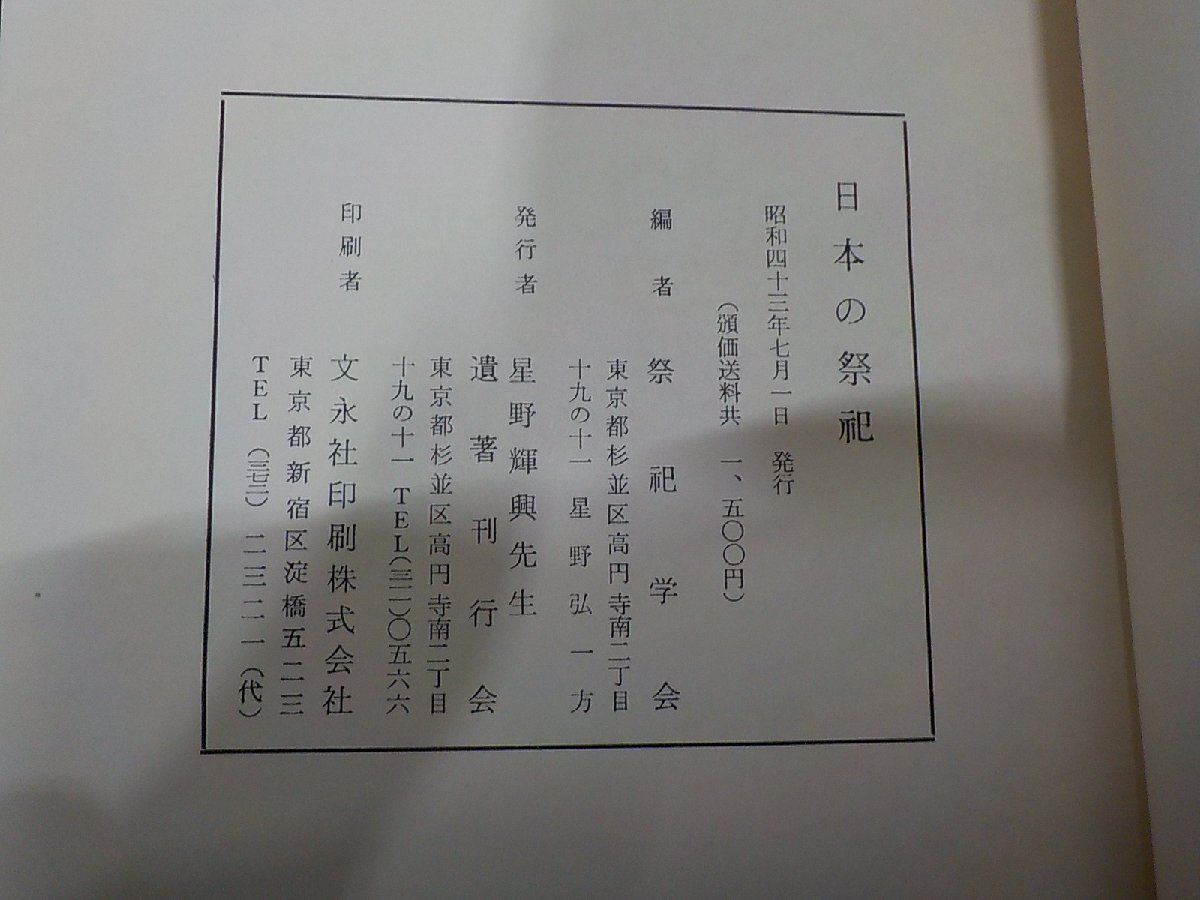 日本の祭祀
昭和四十三年七月一日 発行
(頒価送料共 一、五〇〇円)
編者 祭祀学会
東京都杉並区高円寺南二丁目
十九の十一 星野弘一方
発行者 星野輝興先生
遺著刊行会
東京都杉並区高円寺南二丁目
十九の十一 TEL(三一一)〇五六六
印刷者 文永社印刷株式会社
東京都新宿区淀橋五二三
TEL (三七二) 二三二一(代)